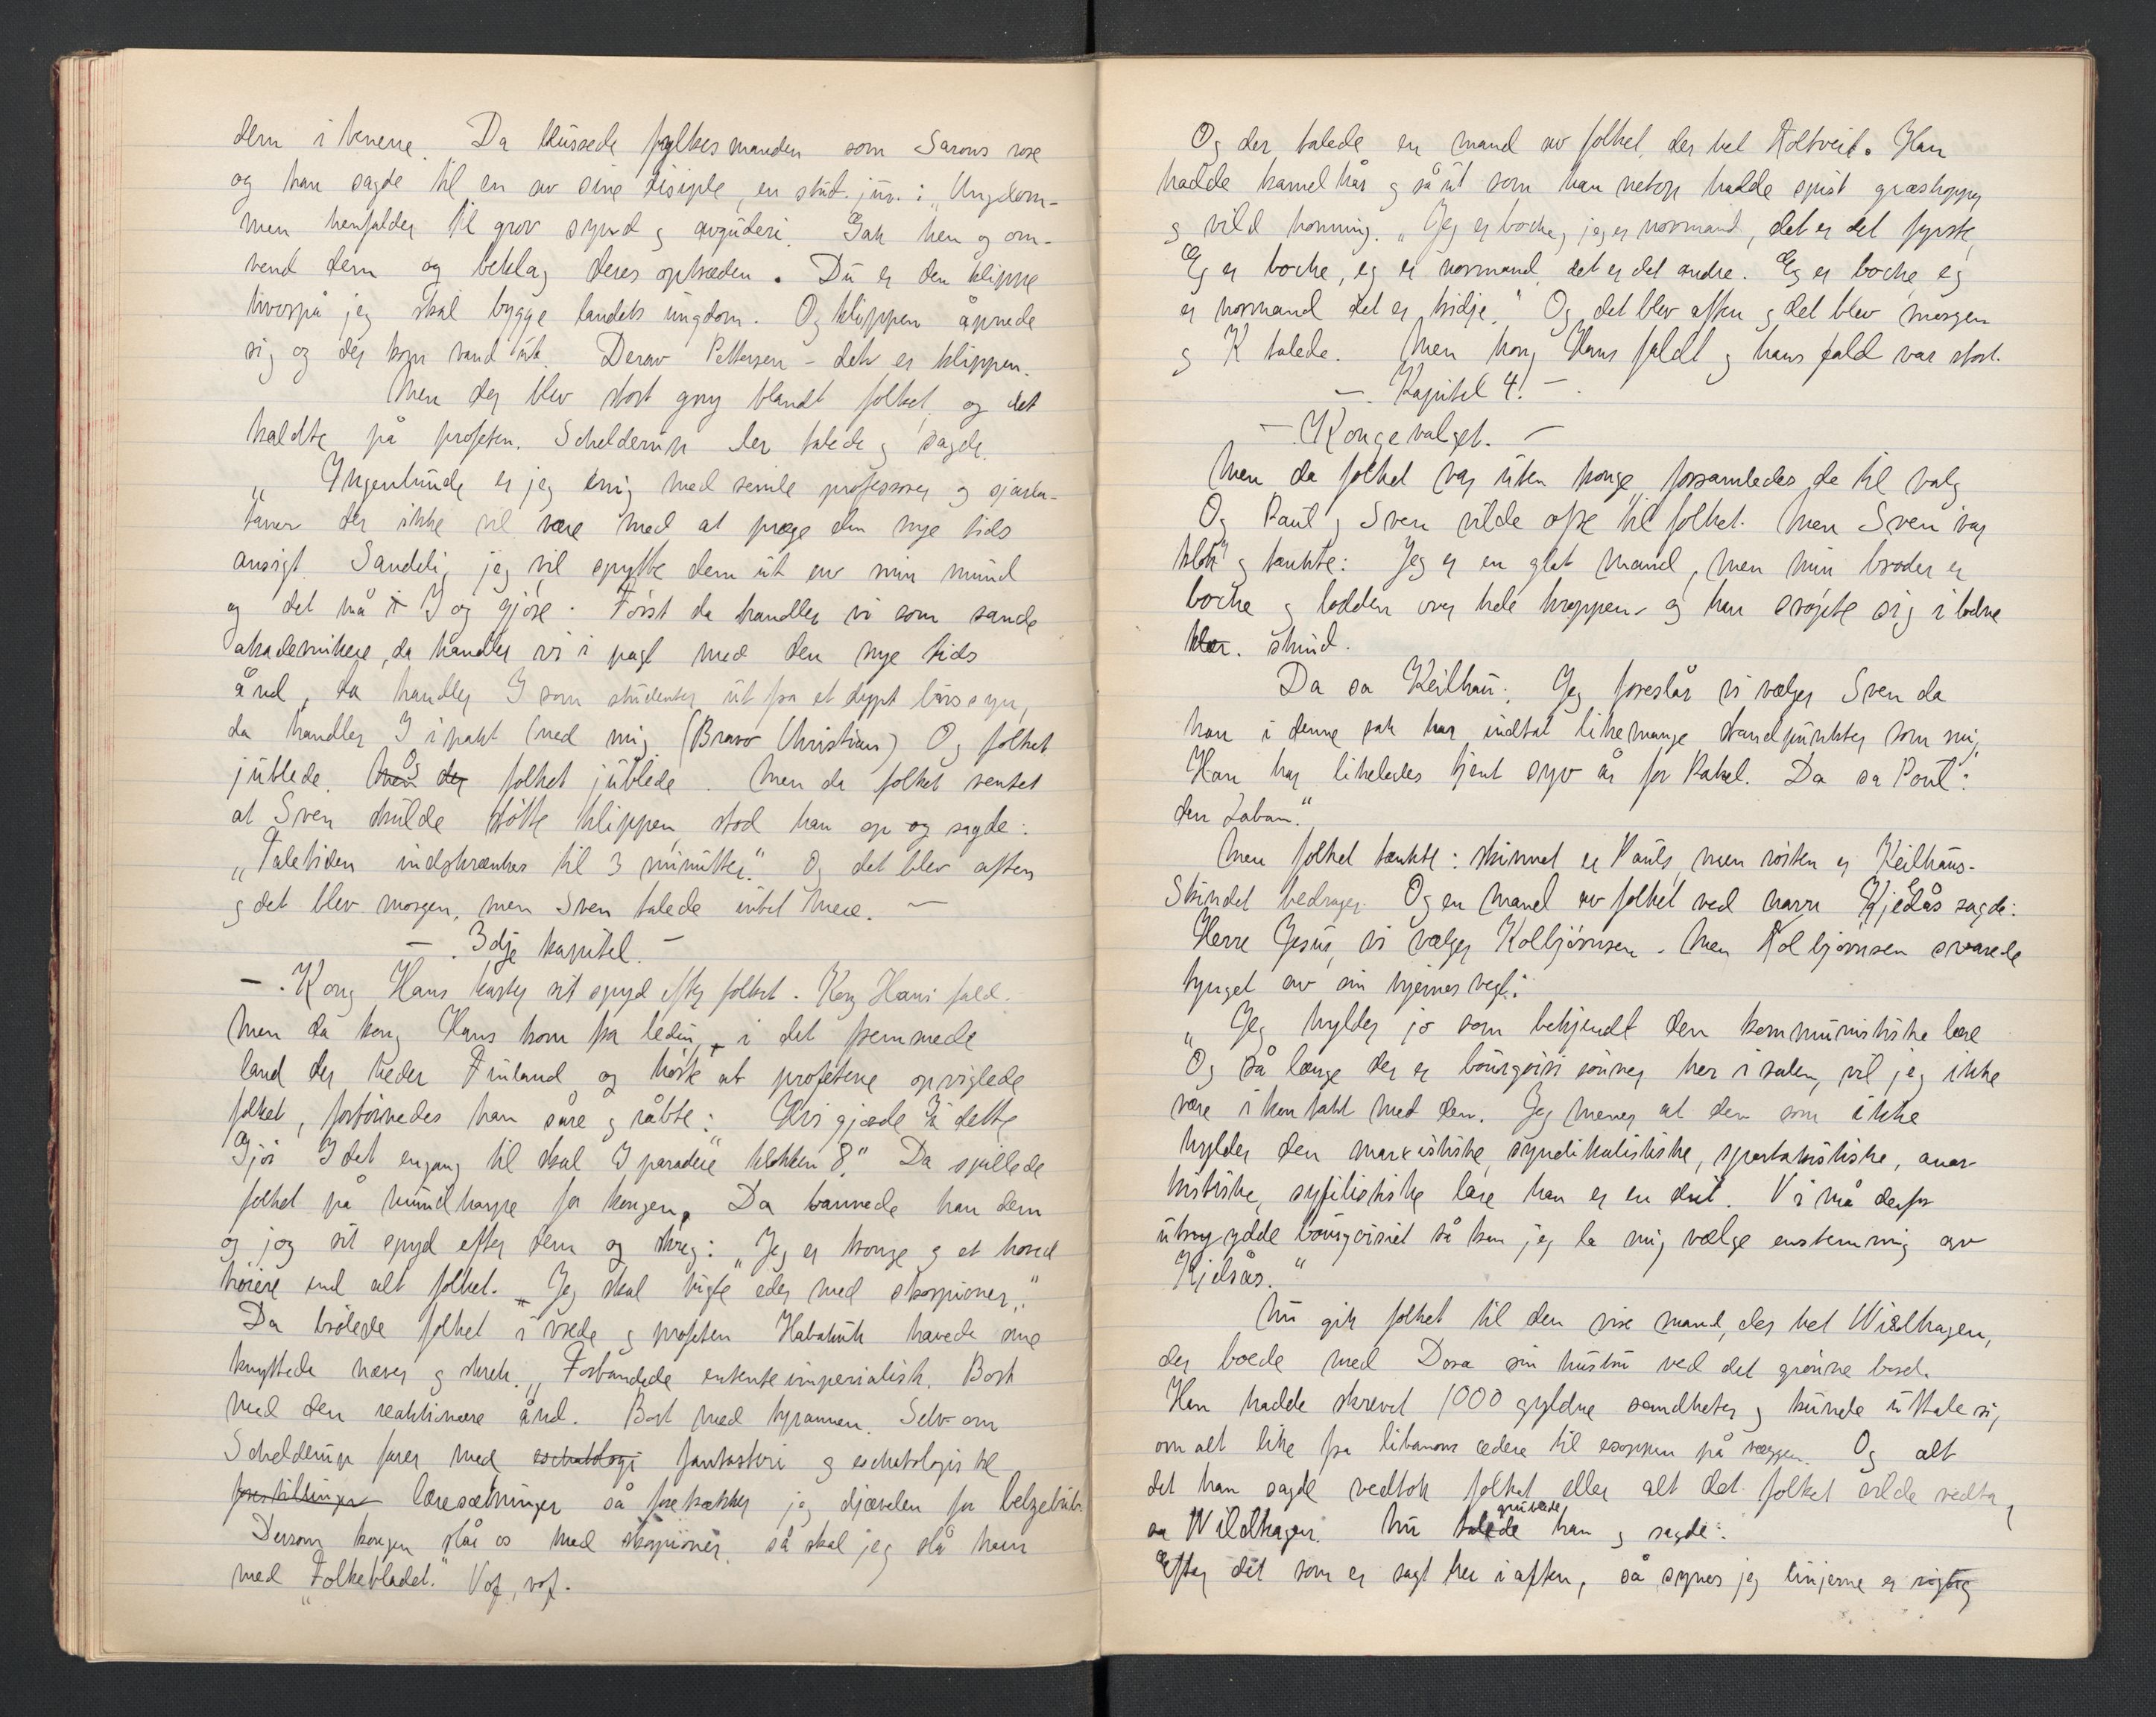 dem i tenene. Da blussede fylkesmanden som Sarons rose
og han sagde til en av sine disiple, en stud. jur.: „Ungdom-
men henfalder til grov synd og avguderi. Gak hen og om-
vend dem og beklag deres optræden. Du er den klippe
hvorpå jeg skal bygge landets ungdom. Og klippen åpnede
sig og der kom vand ut. Derav Pettersen – det er klippen.
Men der blev stort gny blandt folket, og det
kaldte på profeten. Schelderup der talede og sagde.
„Ingenlunde er jeg enig med senile professorer og sjarla-
taner der ikke vil være med at præge den nye tids
ansigt. Sandelig jeg vil spytte dem ut av min mund
og det må i I og gjøre. Først da handler vi som sande
akademikere, da handler vi i pagt med den nye tids
ånd, da handler I som studenter ut fra et dypt livssyn,
da handler I i pakt med mig. (Bravo Christian) Og folket
jublede. Men der Og folket jublede. Men da folket ventet
at Sven skulde støtte klippen, stod han op og sagde:
„Taletiden indskrænkes til 3 minutter." Og det blev aften
og det blev morgen, men Sven talede intet mere. —
— . 3dje kapitel. —
— . Kong Hans kaster sit spyd efter folket. Kong Hans' fald.
Men da kong Hans kom fra leding i det fremmede
land der heder Finland og hørte at profetene opviglede
folket, fortørnedes han såre og råbte: Hvi gjorde I dette
Og gjør I det engang til skal I paradere klokken 8." Da spillede
folket på mundharpe for kongen. Da bannede han dem
og jog sit spyd efter dem og skreg: „Jeg er konge og et hoved
høiere end alt folket. Jeg skal tugte eder med skorpioner."
Da brølede folket i vrede og profeten Habakuk hævede sine
knyttede næver og skrek. „Forbandede ententeimperialist. Bort
med den reaktionære ånd. Bort med tyrannen. Selv om
Schelderup farer med eschatologi fantasteri og eschatologiske
forestillinger læresætninger så foretrækker jeg djævelen for belzebub.
Dersom kongen slår os med skorpioner, så skal jeg slå ham
med „Folkebladet." Vof, vof.
Og der talede en mand av folket, der het Holtveit. Han
hadde kamelhår og så ut som han netop hadde spist græshopper
og vild honning. „Jeg er bocke, jeg er normand, det er det fyrste,
Eg er bocke, eg er normand, det er det andre. Eg er bocke eg
er normand det er tridje." Og det blev aften og det blev morgen
og K talede. Men kong Hans faldt og hans fald var stort.
— . Kapitel 4. —
— . Kongevalget. —
Men da folket var uten konge forsamledes de til valg
Og Paul og Sven vilde ofre til folket. Men Sven var
klok og tænkte: Jeg er en glat mand, men min broder er
bocke og lodden over hele kroppen – og han svøpte sig i lodne
klær. skind.
Da sa Keilhau: Jeg foreslår vi vælger Sven da
han i denne sak har indtat likemange standpunkter som mig,
Han har likeledes tjent syv år for Rakel. Da sa Poul:
den Laban."
Men folket tænkte: skinnet er Pauls, men røsten er Keilhaus.
Skindet bedrager. Og en mand av folket ved navn Kjelås sagde:
Herre Jesus, vi vælger Kolbjørnsen. Men Kolbjørnsen svarede
tynget av sin hjernes vegt:
„Jeg hylder jo som bekjendt den kommunistiske lære
Og så længe der er bourgoisi sønner her i salen, vil jeg ikke
være i kontakt med dem. Jeg mener at den som ikke
hylder den marxistiske, syndikalistiske, spartakistiske, anar-
kistiske, syfilistiske lære han er en drit. Vi må derfor
utrydde bourgoisiet så kan jeg la mig vælge enstemmig av
Kjelsås."
Nu gik folket til den vise mand, der het Wildhagen,
der boede med Dora sin hustru ved det grønne bord.
Han hadde skrevet 1000 gyldne sandheter og kunde uttale sig
om alt like fra libanons cedere til esoppen på væggen. Og alt
det han sagde vedtok folket eller alt det folket vilde vedta,
sa Wildhagen. Nu talede grublede han og sagde:
Efter det som er sagt her i aften, så synes jeg linjerne er rigtig